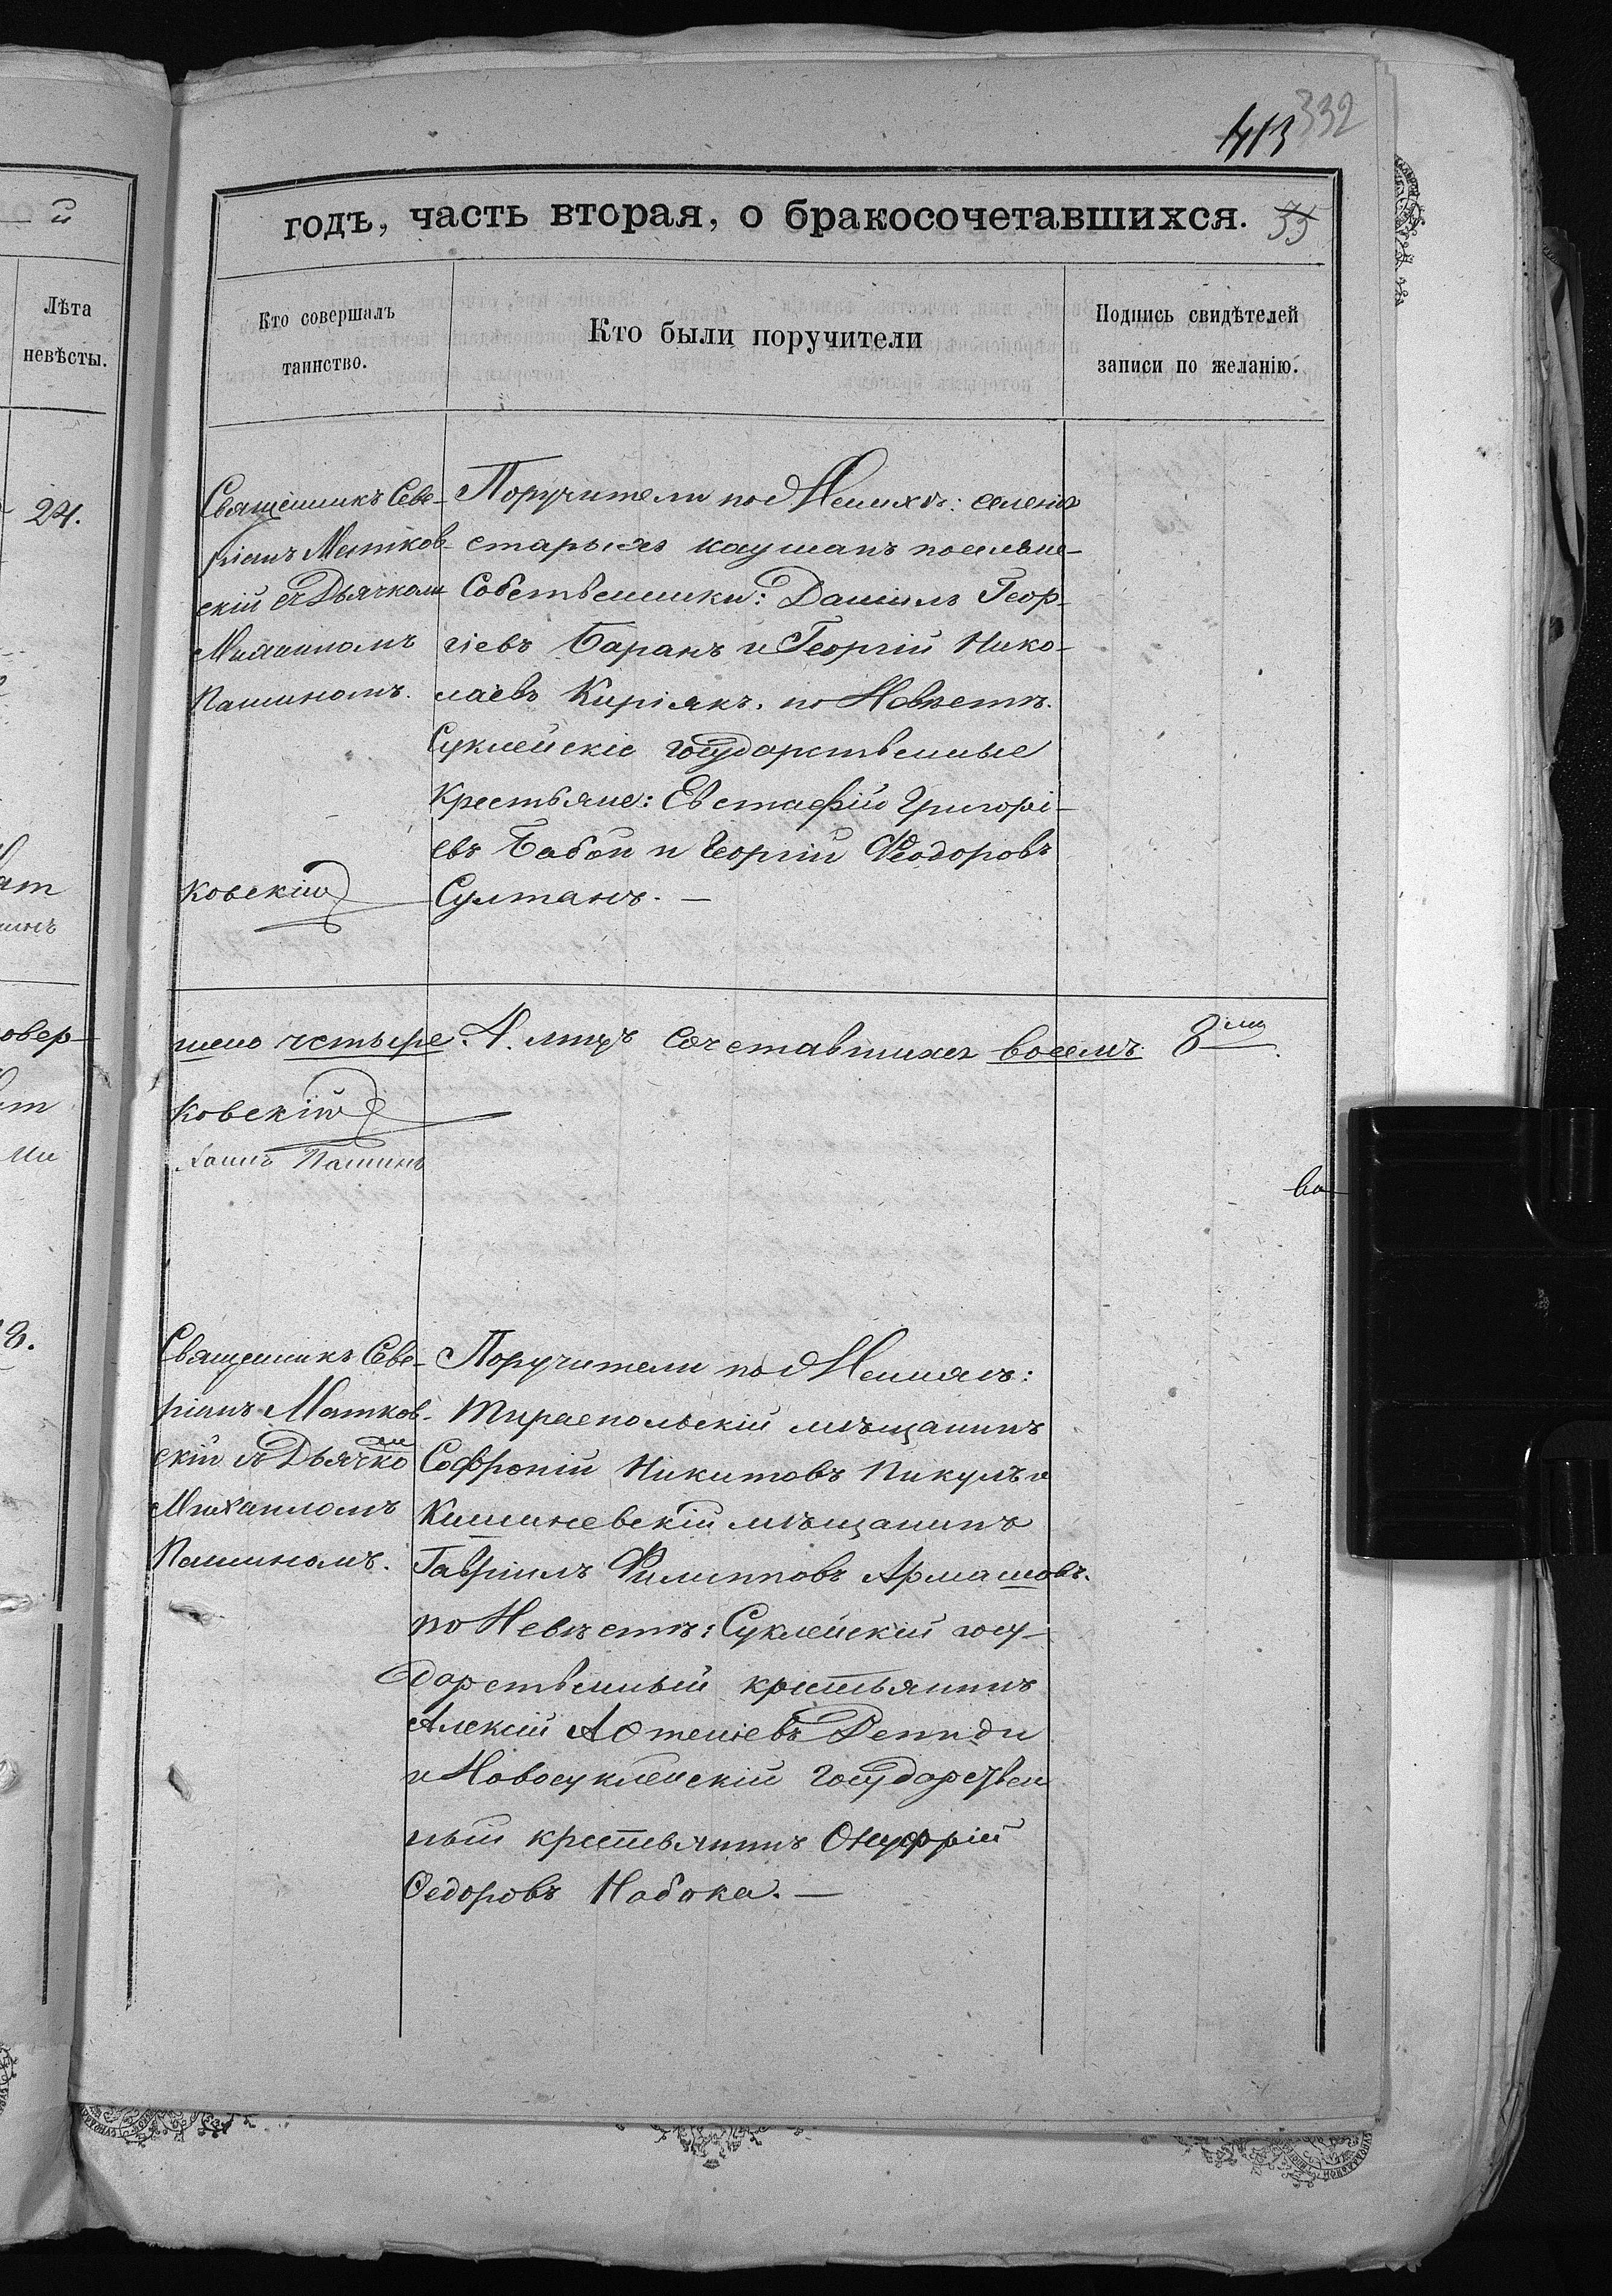 332
413
годъ, часть вторая, о бракосочетавшихся. 35
й
Лѣта
невѣсты.
Кто совершалъ
таинство.
Кто были поручители
Подпись свидѣтелей
записи по желанію.
24.
Священникъ Севе-
ріанъ Матков-
скій съ Дьячкомъ
Михаиломъ
Пашиномъ.
ковскій
Поручители по Женихѣ: селенія
старыхъ каушанъ поселяне
Собственники: Даніилъ Геор-
гіевъ Баранъ и Георгій Нико-
лаевъ Киріякъ. по Невѣстѣ.
Суклейскіе государственные
крестьяне: Евстафій Григорі-
евъ Бабой и Георгій Феодоровъ
Султанъ. —
овер-
шено четыре. 4. лицъ сочетавшихся восемь 8
ковскій
хаилъ Пашинъ
8.
Священникъ Севе-
ріанъ Матков-
скій съ Дьячко
мъ
Михаиломъ
Пашиномъ.
Поручители по Женихѣ:
Тираспольскій мѣщанинъ
Софроній Никитовъ Пикулъ и
Кишиневскій мѣщанинъ
Гавріилъ Филипповъ Армашовъ.
по Невѣстѣ: Суклейскій госу-
дарственный крестьянинъ
Алексій Дениди
и Новосуклейскій Государствен
ный крестьянинъ Онуфрій
Ѳедоровъ Набока. —